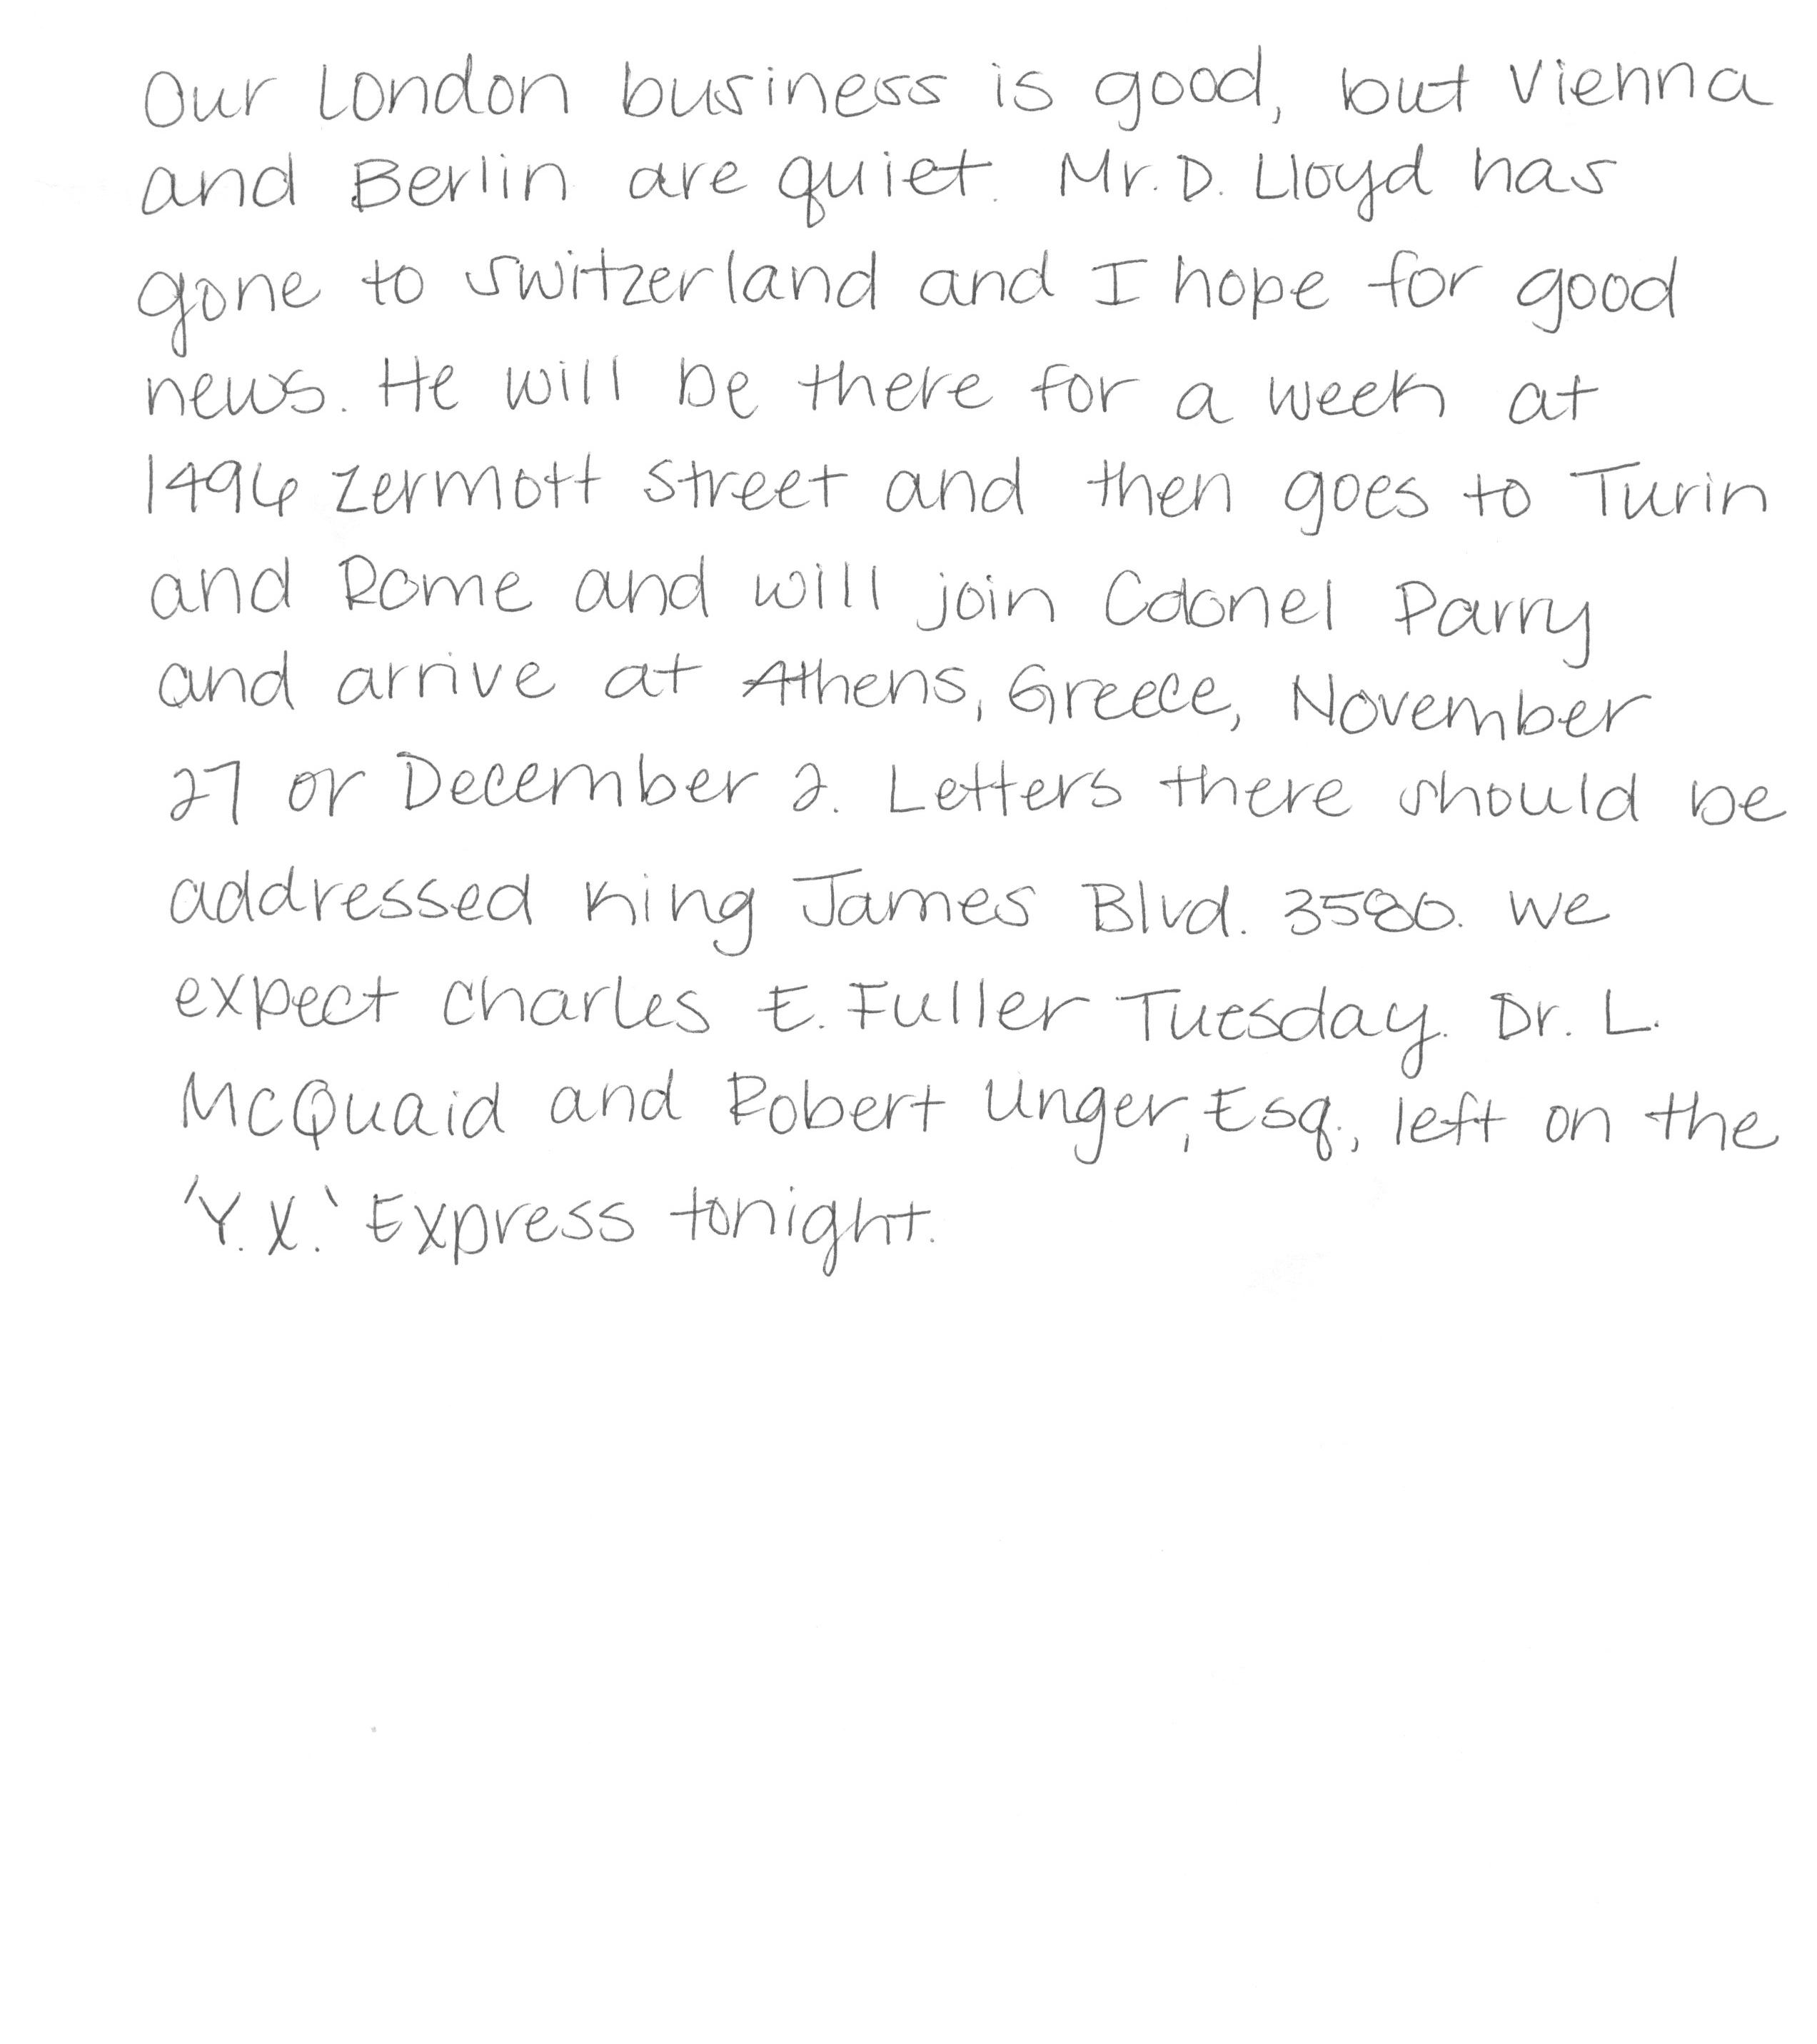 Our London business is good, but Vienna
and Berlin are quiet. Mr. D. Lloyd has
gone to Switzerland and I hope for good
news. He will be there for a week at
1496 Zermott Street and then goes to Turin
and Rome and will join Colonel Parry
and arrive at Athens, Greece, November
27 or December 2. Letters there should be
addressed King James Blvd. 3580. We
expect Charles E. Fuller Tuesday. Dr. L.
McQuaid and Robert Unger, Esq., left on the
'Y.X.' Express tonight.